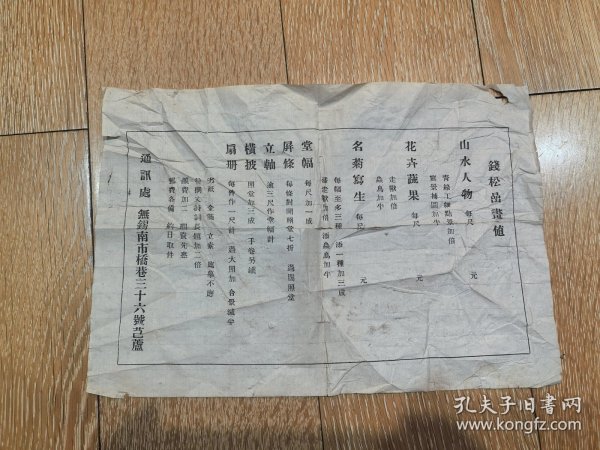 錢松嵒畫值
山水人物 每尺 元
青綠工細點景加倍
寫景補圖加半
花卉蔬果 每尺 元
走獸加倍
蟲鳥加半
名菊寫生 每尺 元
每幅至多三種 添一種加三成
添走獸加倍 添蟲鳥加半
堂幅 每尺加一成
屏條 每條對開照堂七折 過四照堂
立軸 過三尺作堂幅計
橫披 照堂加三成 手卷另議
扇冊 每件作一尺計 過大照加 合景減半
劣紙 金箋 立索 處篆不應
長題加二倍
潤資先惠
郵費各備 約日取件
通訊處 無錫南市橋巷三十六號芑蘆
孔夫子旧書网
www.kongfz.com